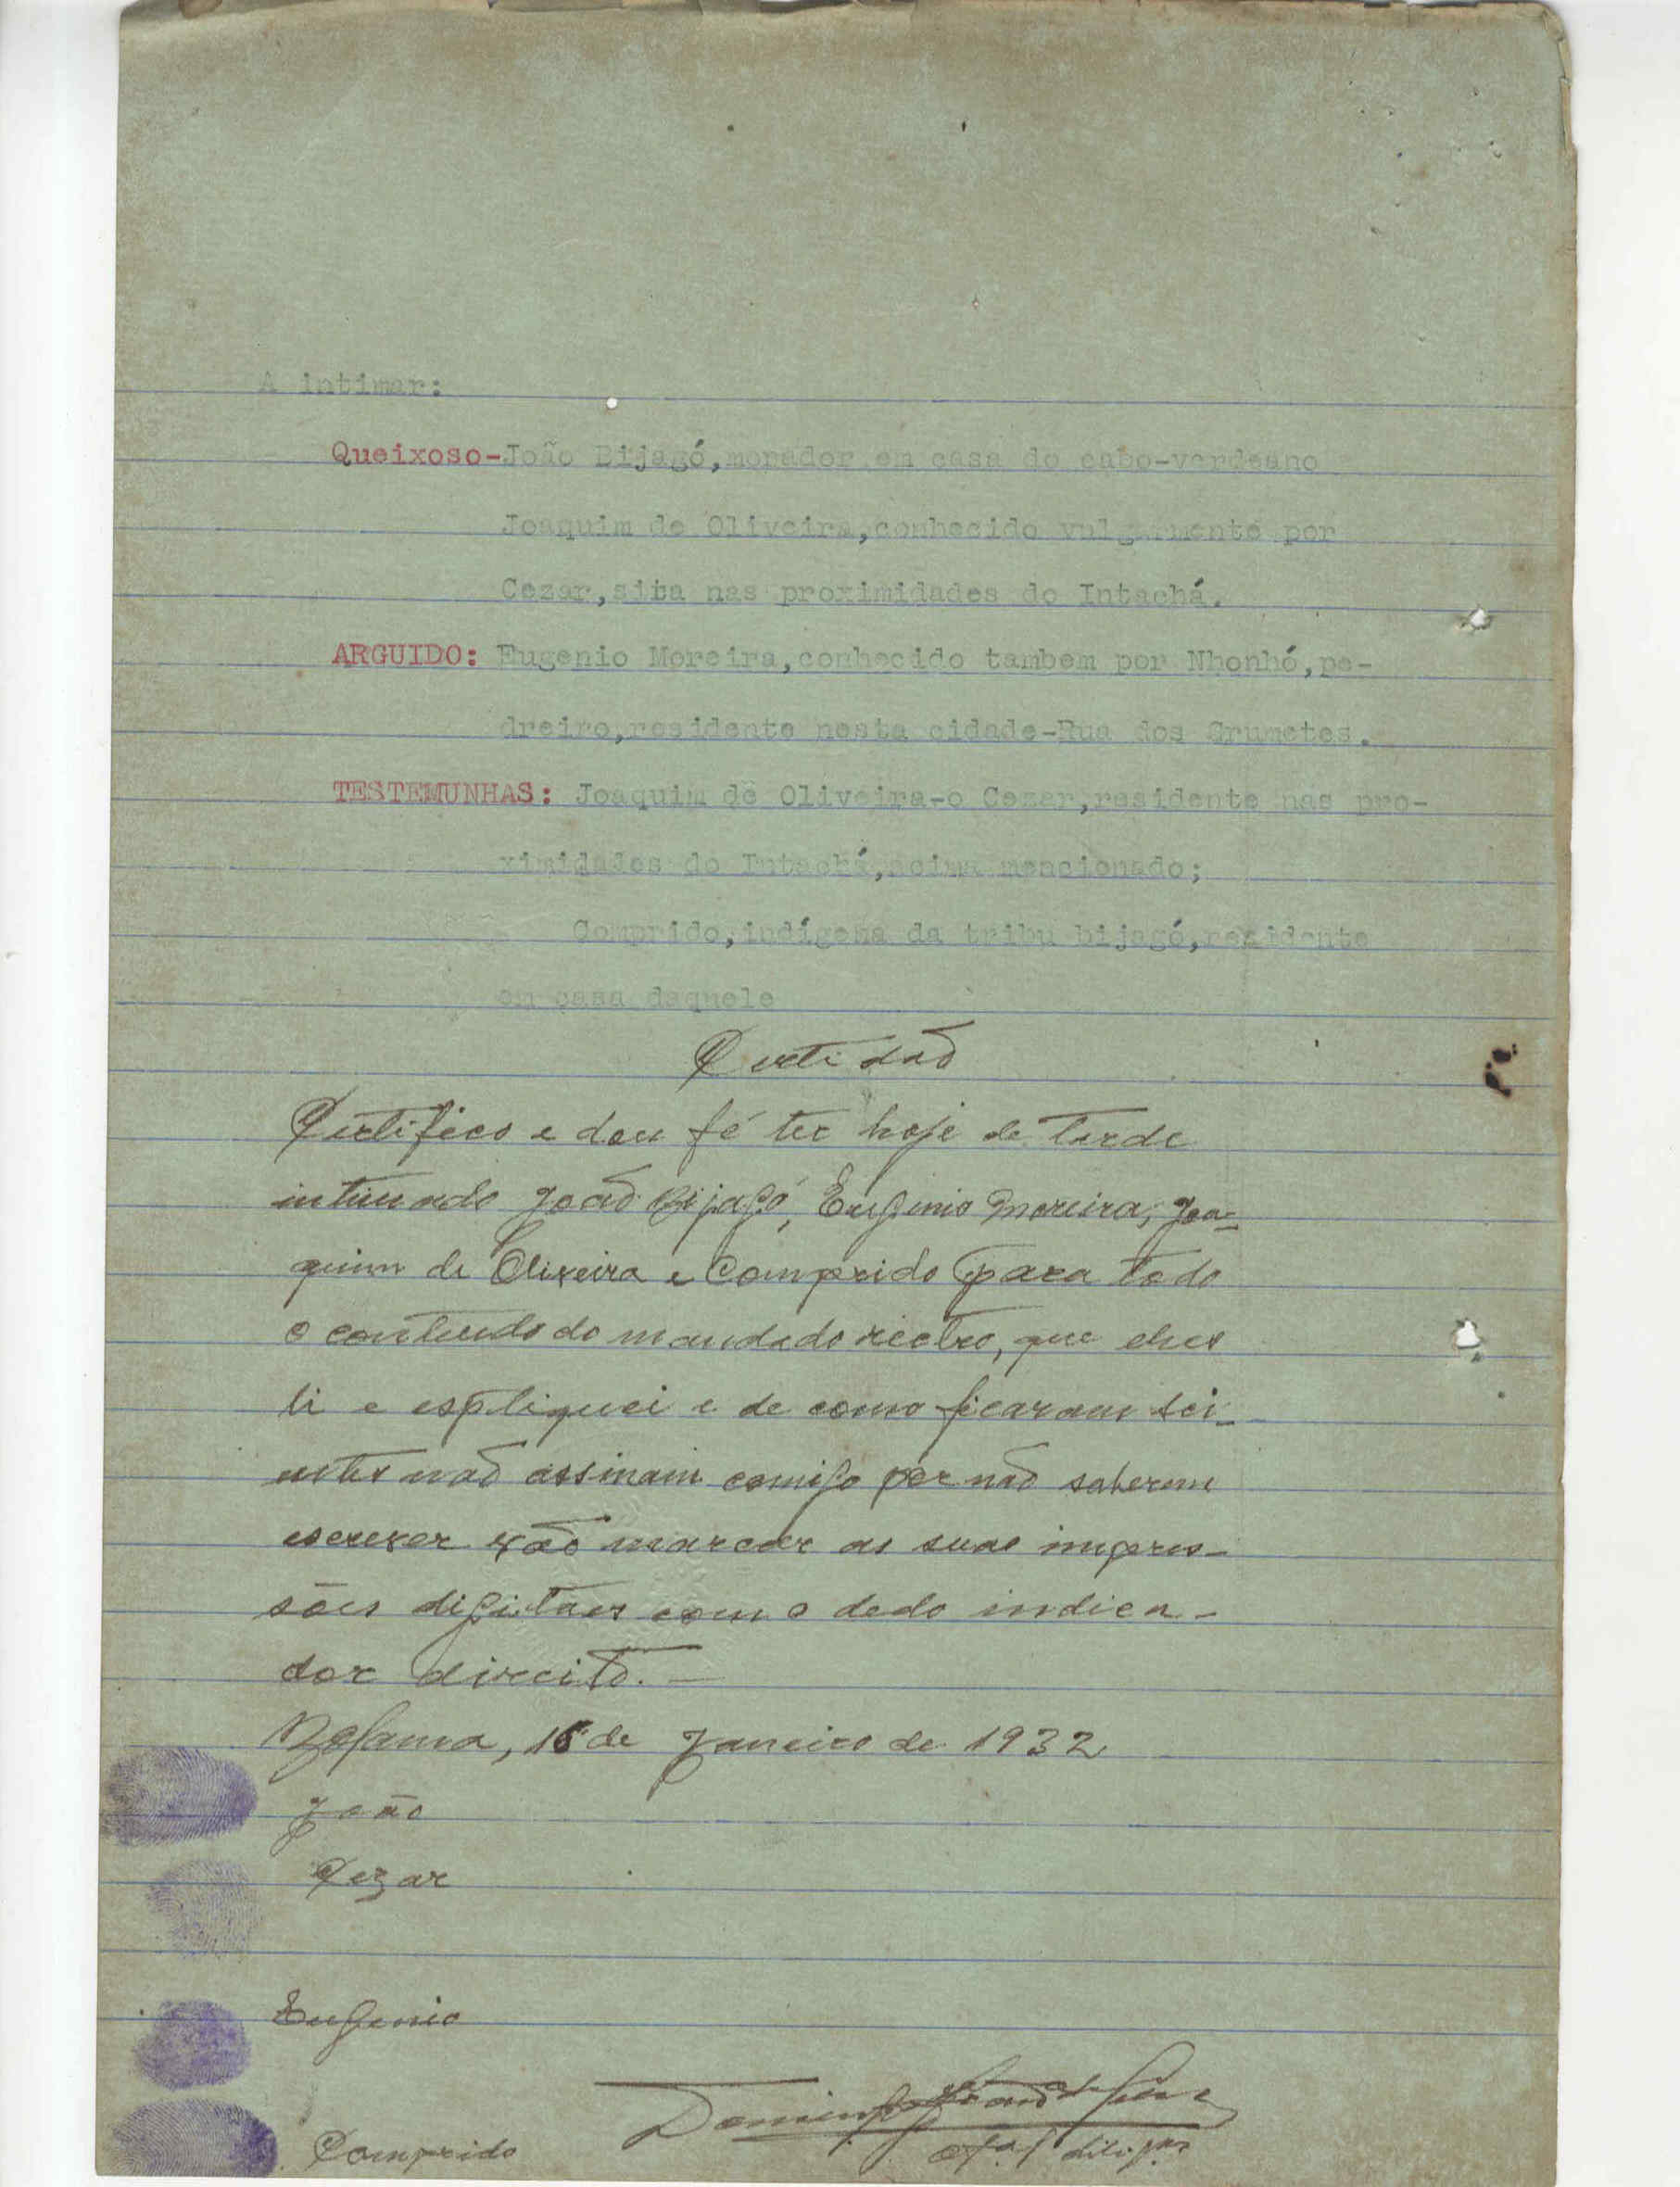 A intimar:
Queixoso-João Bijagó,morador em casa do cabo-verdeano
Joaquim de Oliveira,conhecido vulgarmente por
Cezar,sita nas proximidades do Intachá.
ARGUIDO: Eugenio Moreira,conhecido tambem por Nhonhó,pe-
dreiro,residente nesta cidade-Rua dos Grumetes.
TESTEMUNHAS: Joaquim de Oliveira-o Cezar,residente nas pro-
ximidades do Intachá,acima mencionado;
Comprido,indígena da tribu bijagó,residente
em casa daquele
Certidão
Certifico e dou fé ter hoje de tarde
intimado João Bijagó, Eugenio Moreira, Joa-
quim de Oliveira e Comprido para todo
o conteudo do mandado rectro, que elhes
li e espliquei e de como ficaram sci-
entes não assinam comigo por não saberem
escrever vão marcar as suas impres-
sões digitaes com o dedo indica-
dor direito.—
Bolama, 16 de Janeiro de 1932
João
Cezar
Eugenio
Domingos
Comprido